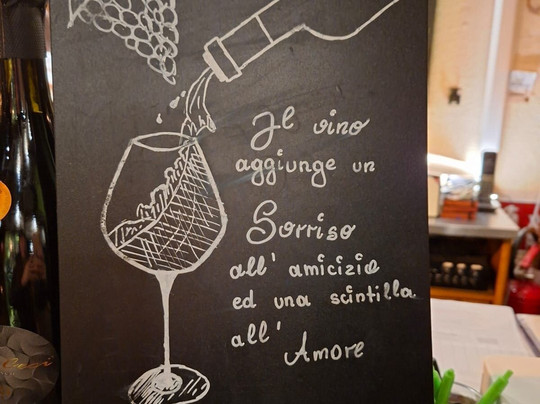 Il vino
aggiunge un
Sorriso
all' amicizia
ed una scintilla
all'
Amore